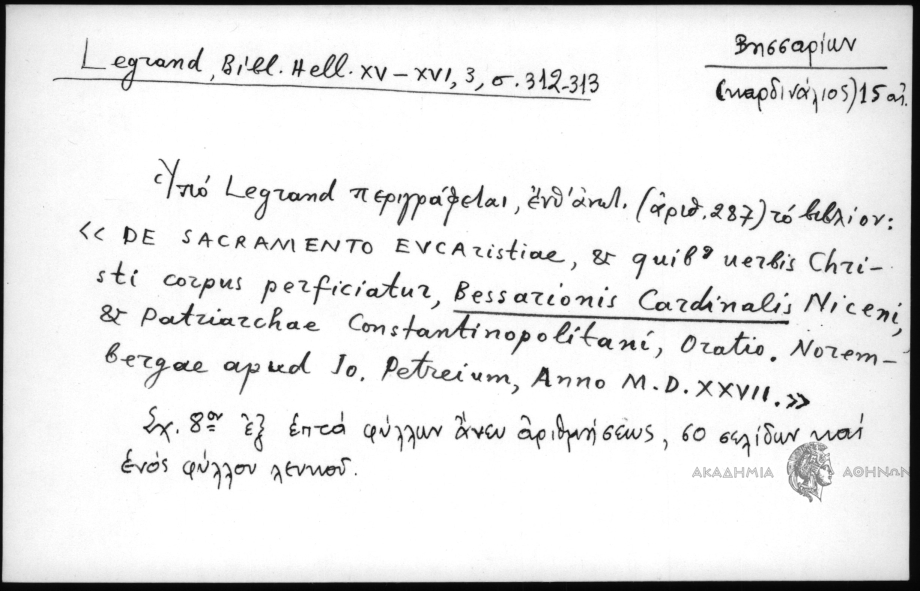 Legrand, Βιβλ. Hell. XV – XVI, 3, σ. 312-313
Βησσαρίων
(καρδινάλιος) 15 αἰ.
Ὑπό Legrand περιγράφεται, ἔνθ' ἀνωτ. (ἀριθ. 287) τό βιβλίον:
<< DE SACRAMENTO EVCAristiae, & quibꝰ uerbis Chri-
sti corpus perficiatur, Bessarionis Cardinalis Niceni,
& Patriarchae Constantinopolitani, Oratio. Norem-
bergae apud Jo. Petreium, Anno M.D.XXVII. >>
Σχ. 8ον ἐξ ἑπτά φύλλων ἄνευ ἀριθμήσεως, 60 σελίδων καί
ἑνός φύλλου λευκοῦ.
ΑΚΑΔΗΜΙΑ ΑΘΗΝΩΝ